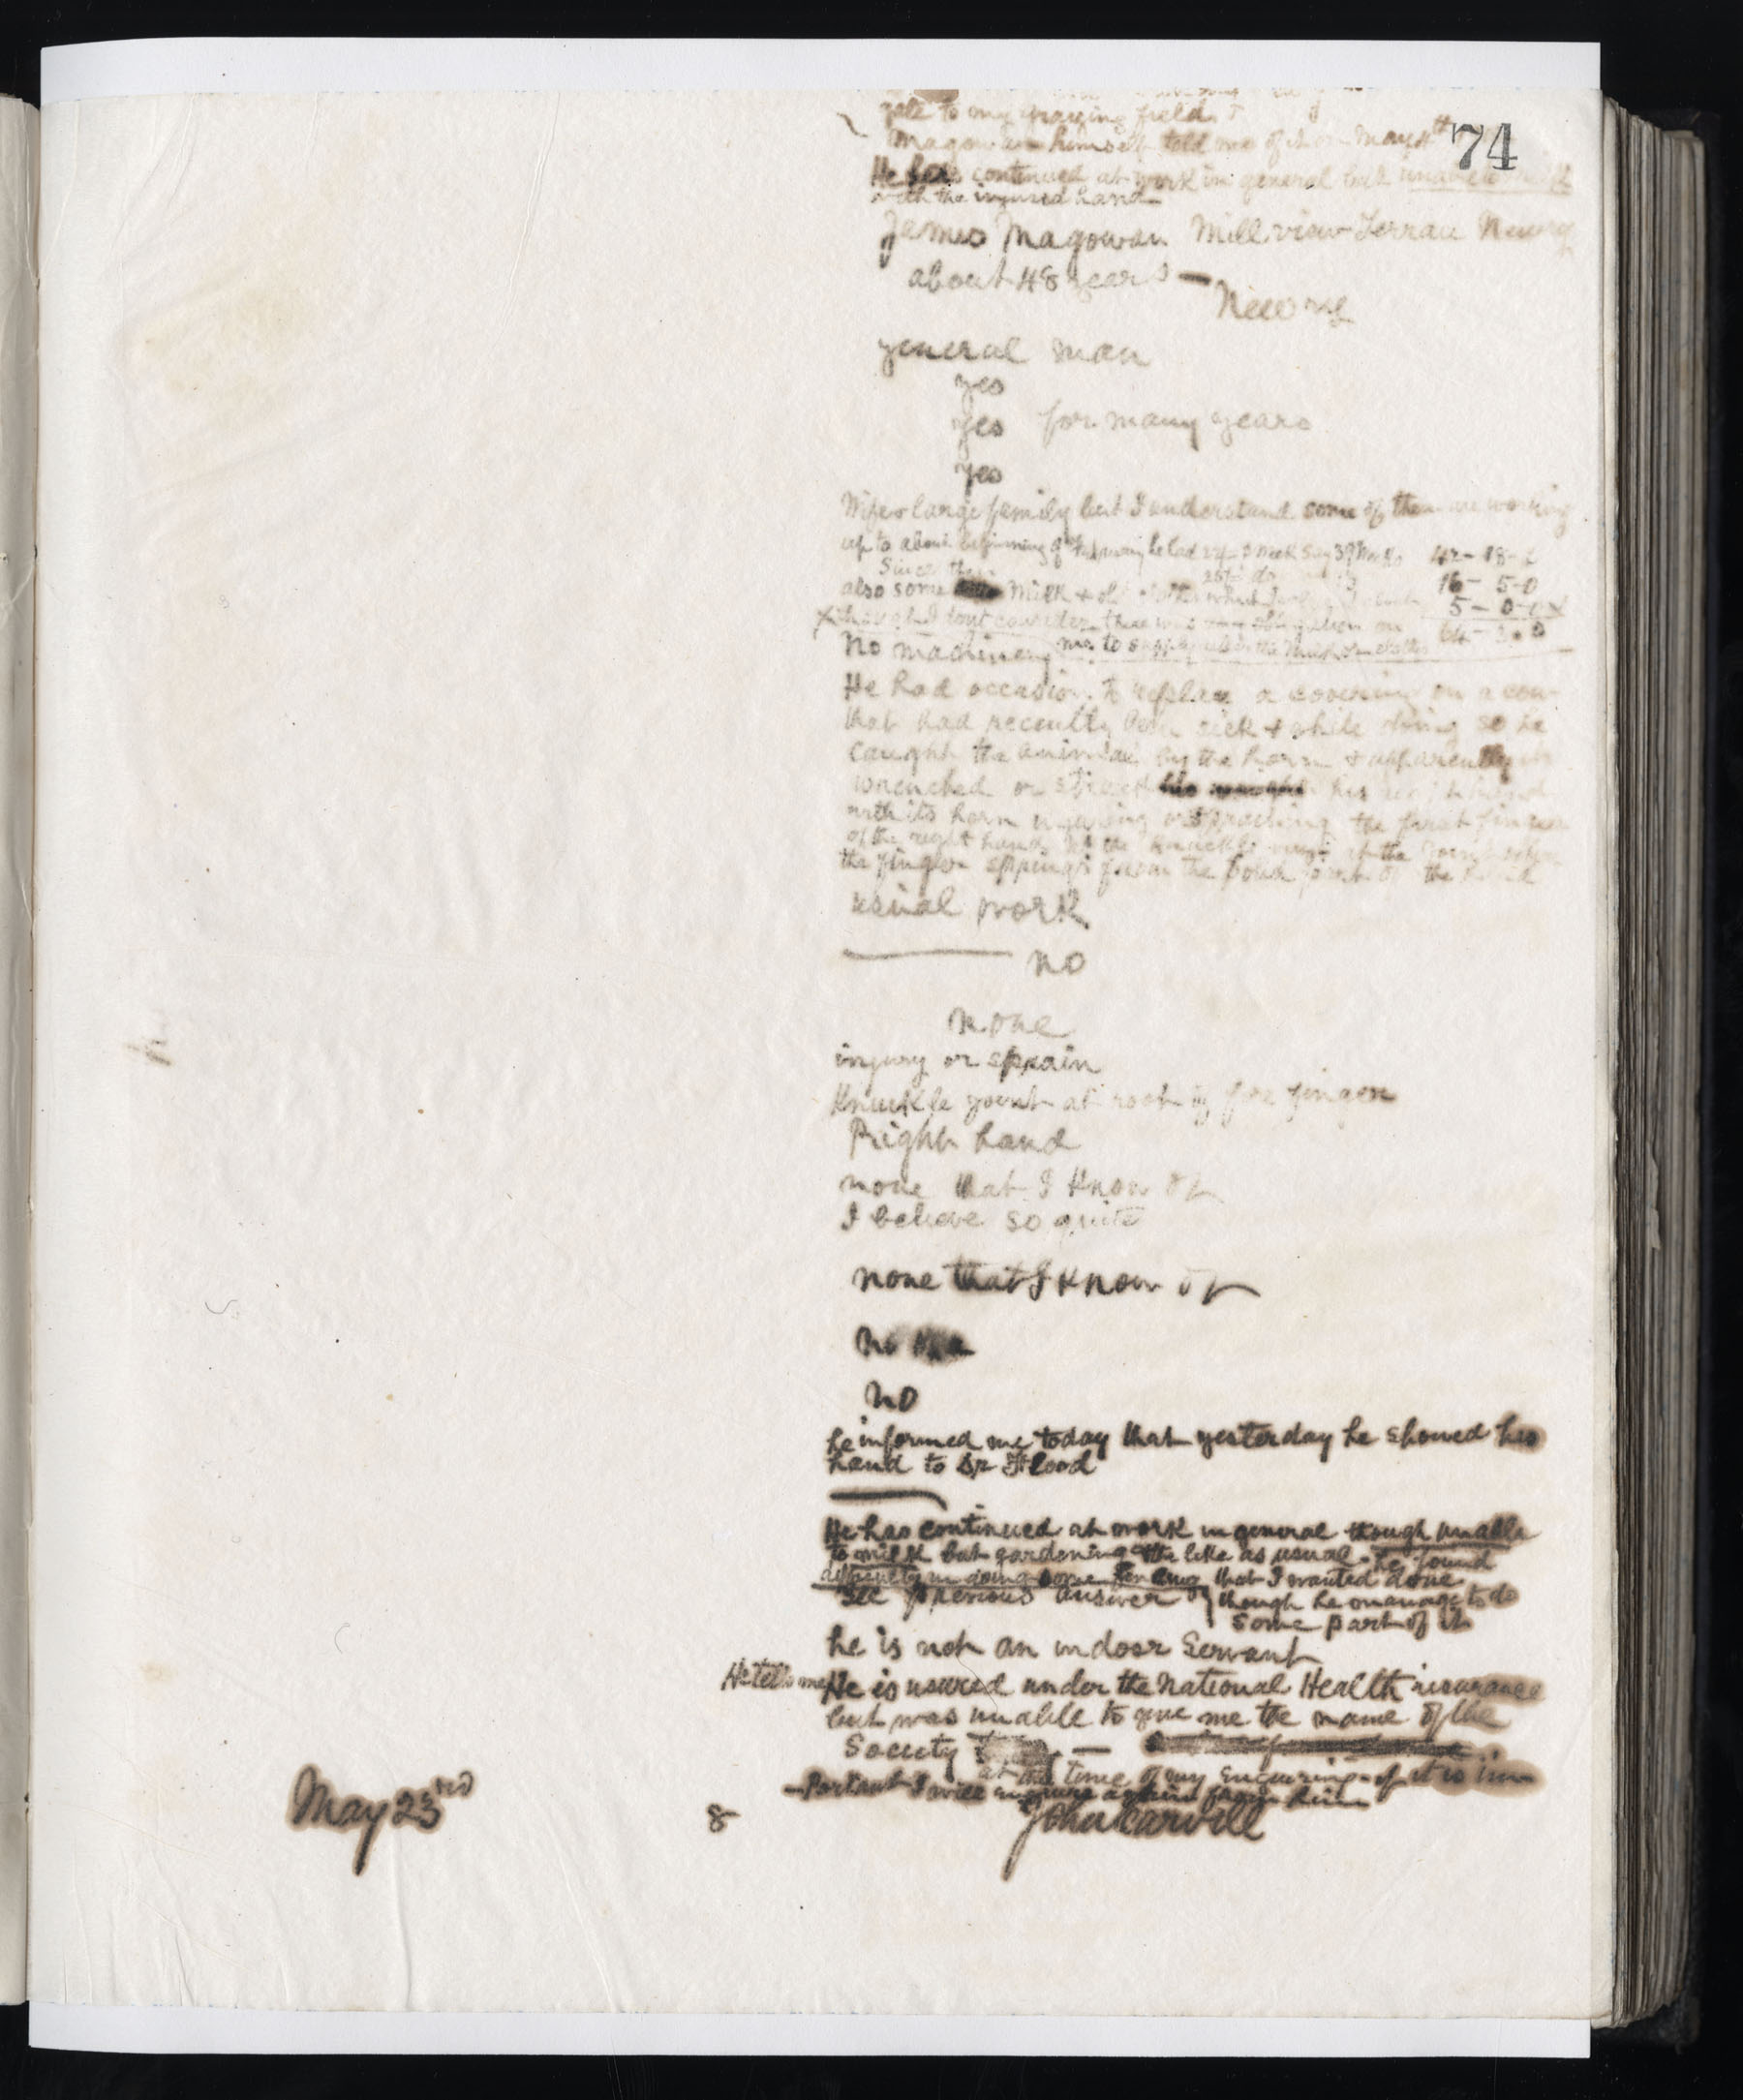 74
gate to my grazing field.
Magowan himself told me of it on May 4th
He has continued at work in general but unable to milk
with the injured hand
James Magowan Mill view Terrace Newry
about 48 years —
Newry
general man
yes
yes for many years
yes
Wife & large family but I understand some of them are working
up to about beginning of he had week say 39 weeks 42-18-
Since then 25/- do 16-5-0
also some milk & old clothes which 5-0-0 x
x though I dont consider there was any obligation on 64-3-0
No machinery me to supply either the milk or clothes
He had occasion to replace a covering on a cow
that had recently been sick & while doing so he
caught the animal by the horn & apparently it
wrenched or struck his right hand
with its horn injuring or spraining the first finger
of the right hand at the knuckle at the joint where
the finger springs from the solid part of the hand
usual work
no
none
injury or sprain
Knuckle joint at root of fore finger
Right hand
none that I know of
I believe so quite
none that I know of
no
no
he informed me today that yesterday he showed his
hand to Dr Flood
He has continued at work in general though unable
to milk but gardening & the like as usual - he found
difficulty in doing some fencing that I wanted done
See previous answer though he managed to do
some part of it
he is not an indoor Servant
He tells me He is insured under the National Health insurance
but was unable to give me the name of the
Society —
at the time of my enquiring - if it is im-
-portant I will enquire again from him
May 23rd 8 John Carvill